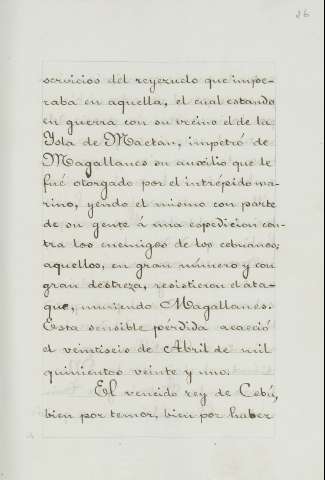 26
servicios del reyezuelo que impe-
raba en aquella, el cual estando
en guerra con su vecino el de la
Ysla de Mactan, impetró de
Magallanes su auxilio que le
fué otorgado por el intrépido ma-
rino, yendo el mismo con parte
de su gente á una espedicion con-
tra los enemigos de los cebuanos;
aquellos, en gran número y con
gran destreza, resistieron el ata-
que, muriendo Magallanes.
Esta sensible pérdida acaeció
el veintiseis de Abril de mil
quinientos veinte y uno.
El vencido rey de Cebú,
bien por temor, bien por haber